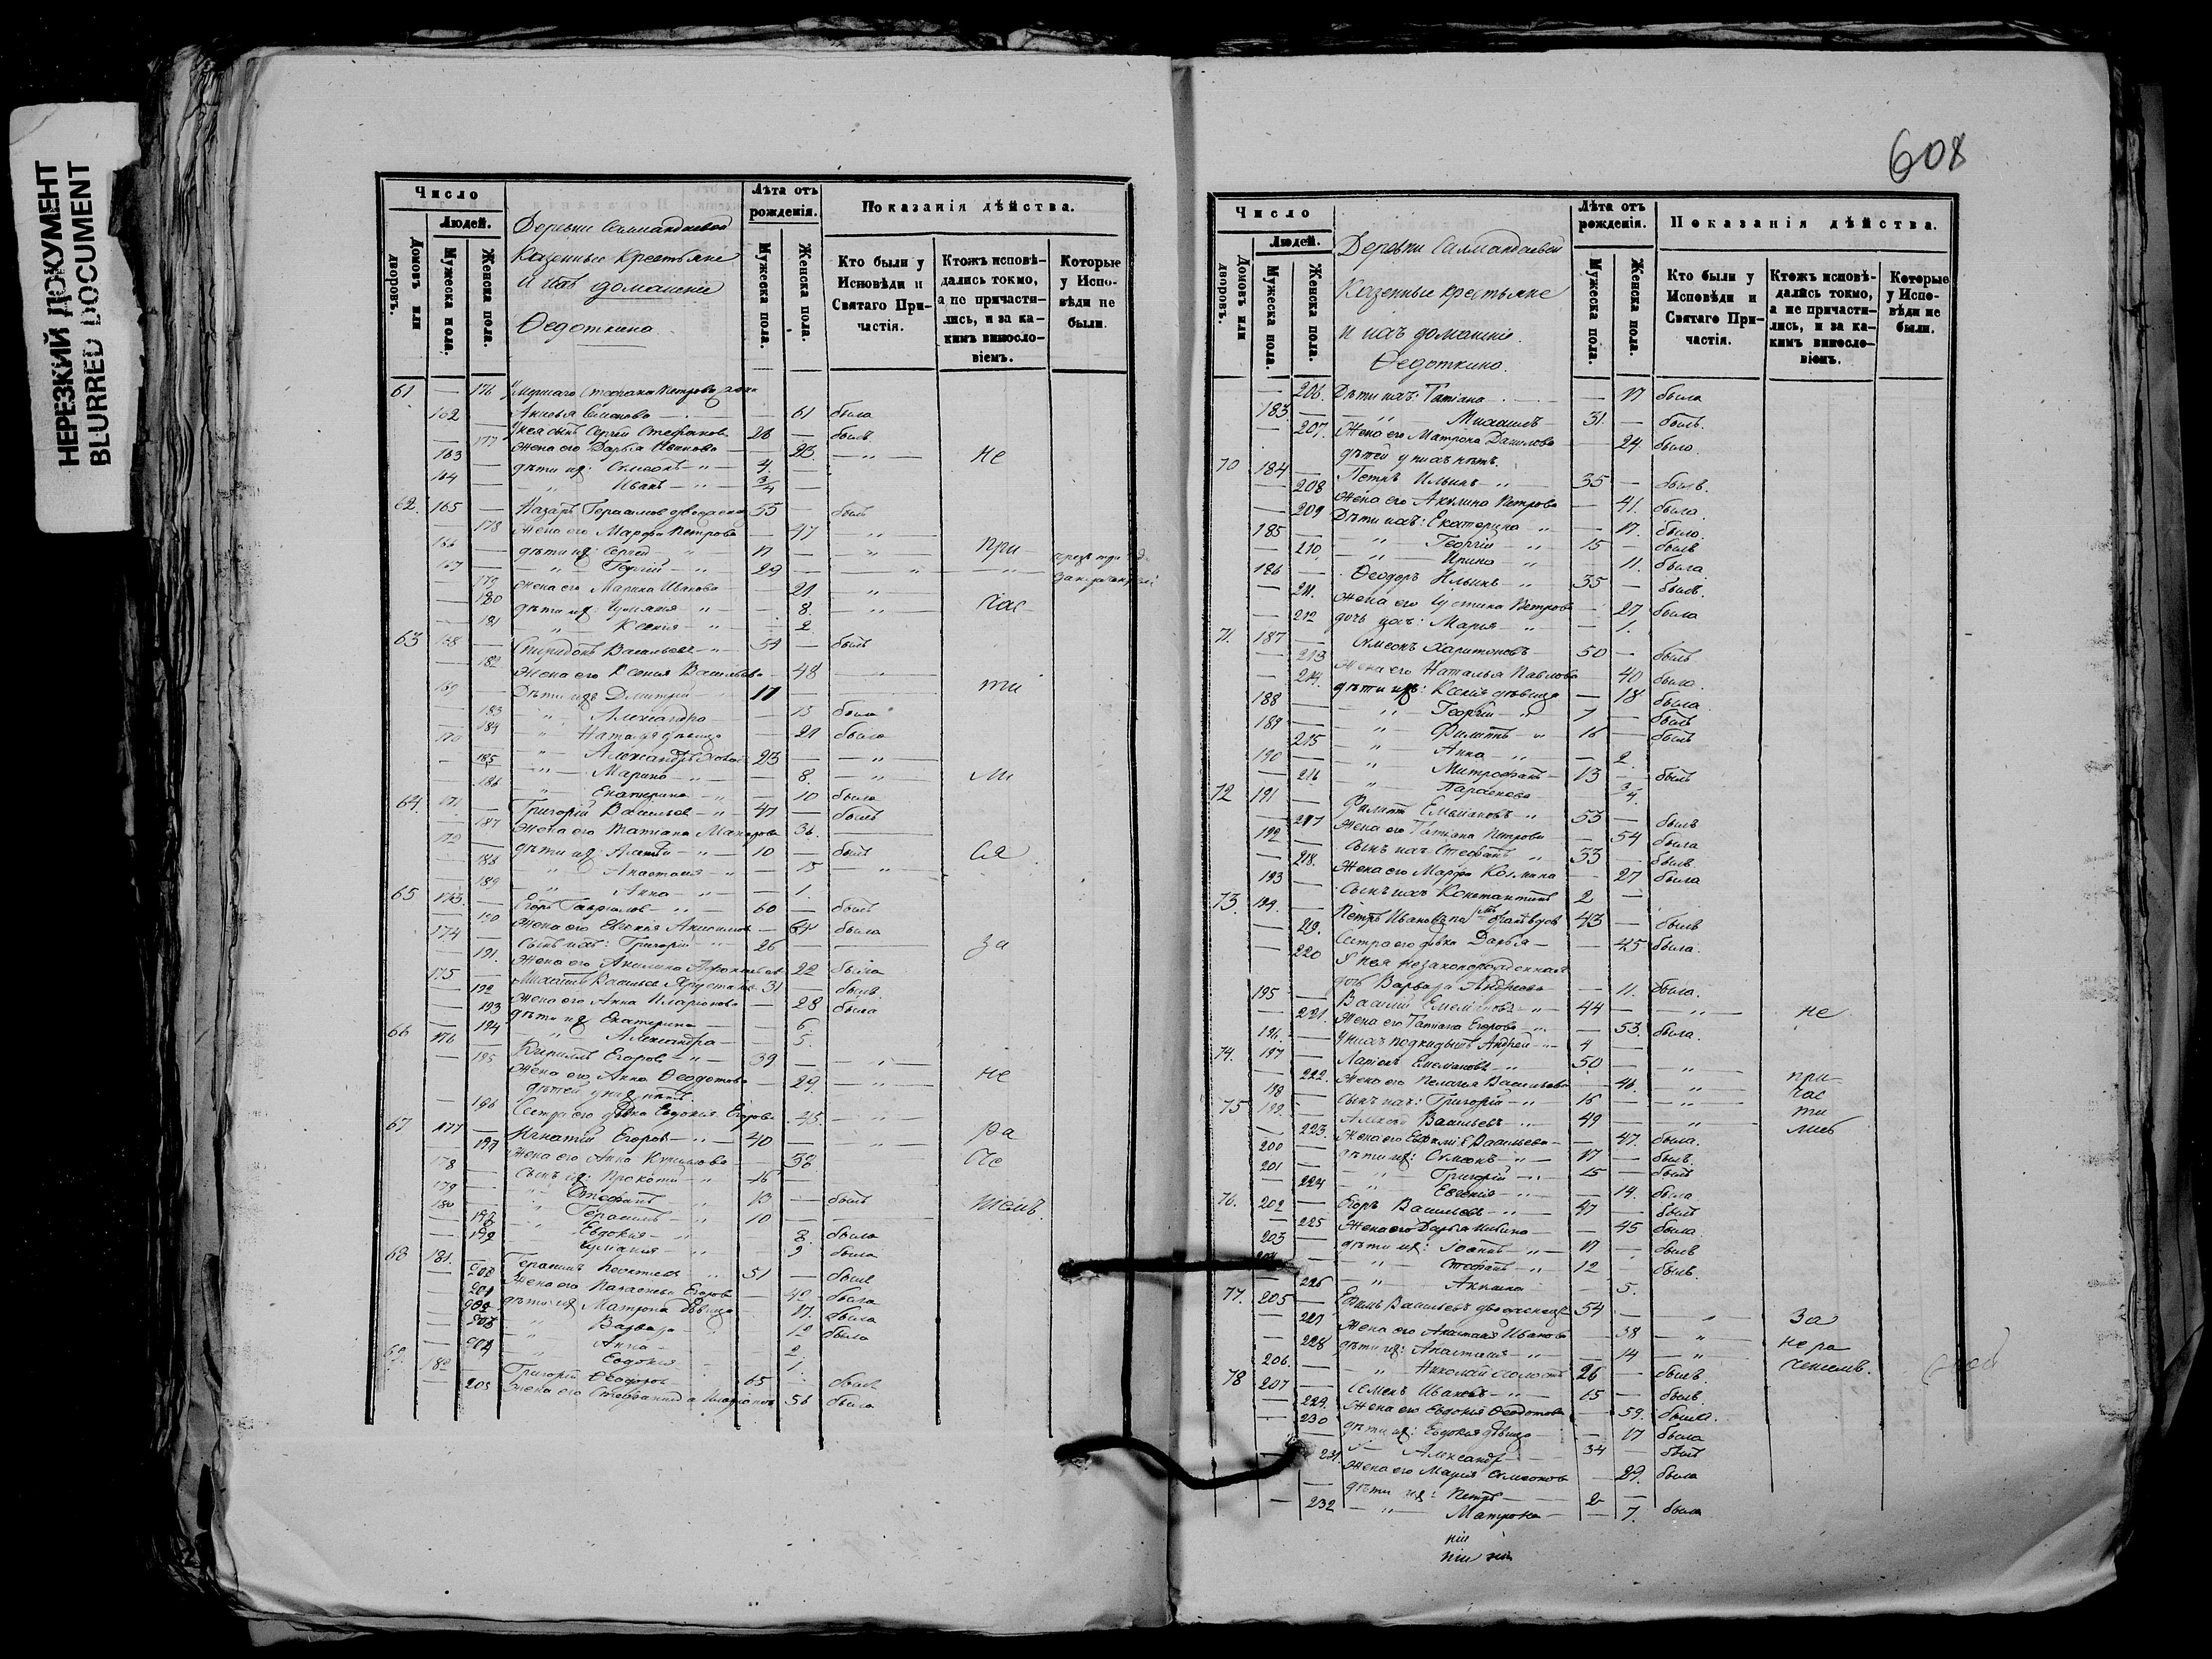 НЕРЕЗКИЙ ДОКУМЕНТ
BLURRED DOCUMENT
Число
Людей.
Домовъ или дворовъ.
Мужеска пола.
Женска пола.
Деревни
Казенные Крестьяне
и ихъ домашние
Ѳедоткина
Лѣта отъ рожденія.
Мужеска пола.
Женска пола.
Показанія дѣйства.
Кто были у Исповѣди и Святаго Причастія.
Ктожъ исповѣдались токмо, а не причастились, и за какимъ винословіемъ.
Которые у Исповѣди не были.
61 — 176 Умершаго Стефана Петрова жена
Симонова — 61 была
162 У нея сынъ Сергей Стефановъ 28 — былъ
177 Жена его Дарья Иванова — 23 — не
163 дѣти их: Симеонъ 4
164 Иванъ 3/4
62. 165 Назаръ Герасимовъ 55 — былъ
178 Жена его Марфа Петрова — 47
166 дѣти их: Сергей 17 — при
167 Георгий 29
179 Жена его Марина Иванова — 21
180 дѣти их: — 8. час
181 Ксения — 2
63 168 Спиридонъ Васильевъ 54 — былъ
182 Жена его Ксения Васильева — 48
169 Дѣти ихъ Дмитрий 17 — ти
183 Александра — 13 была
184 Наталья дѣвица — 21 была
170 Александръ 23
185 Марина — 8. ли
186 Екатерина — 10 была
64. 171 Григорий Васильевъ 47 — былъ
187 Жена его Татиана Макарова 36.
172 дѣти их: 10 — былъ ся
188 Анастасия — 15
189 Анна — 1.
65 173. Егоръ Гавриловъ 60 — былъ
190 Жена его Евгения — 64 была
174 Сынъ ихъ: Григорий 26 — за
191. Жена его Акилина 22 была
175 Михаилъ Васильевъ 31 — былъ
192 Жена его Анна Иларионова — 28 была
193 дѣти их Екатерина — 6.
194 Александра — 5.
66 176 Кирилъ Егоров 39
195 Жена его Анна Ѳеодотова — 29. не
дѣтей у них нѣтъ
196 Сестра его дѣвка Евдокия Егорова 45.
67 177 Игнатий Егоров 40 — ра
197 Жена его Анна Кирилова — 38
178 Сынъ их: Прокопий 16 — че
179 Стефанъ 13 — былъ
180 Герасимъ 10 — ніемъ.
198 Евдокия — 8. была
199 — 9 была
68 181. Герасимъ 51 — былъ
200 Жена его Параскева Егорова — 42 была
201 дѣти их Матрона дѣвица — 17. была
202 Варвара — 12 была
203 Анна — 2
204 Евдокия — 1.
69. 182 Григорий Ѳеодоров 65 — былъ
205 Жена его Стефанида Иларионова 56 была
608
Число
Людей.
Домовъ или дворовъ.
Мужеска пола.
Женска пола.
Деревни
Казенные крестьяне
и ихъ домашние.
Ѳедоткина.
Лѣта отъ рожденія.
Мужеска пола.
Женска пола.
Показанія дѣйства.
Кто были у Исповѣди и Святаго Причастія.
Ктожъ исповѣдались токмо, а не причастились, и за какимъ винословіемъ.
Которые у Исповѣди не были.
— 206. Дѣти ихъ: Татиана — 17 была
183. Михаилъ 31. — былъ.
207. Жена его Матрона Данилова 24. была.
дѣтей у нихъ нѣтъ.
70 184 Петръ Ильинъ 35 — былъ.
208 Жена его Акилина Петрова — 41. была.
209 Дѣти ихъ: Екатерина — 17. была.
185 Георгий 15 — былъ
210 Ирина — 11. была
186 Ѳеодоръ Ильинъ 35 — былъ.
211. Жена его Иустина Петрова — 27 была
212 дочь ихъ: Мария — 1.
71. 187 Симеонъ Харитоновъ 50 — былъ
213 Жена его Наталья Павлова 40 была.
214. дѣти ихъ: Ксения дѣвица — 18 была.
188 Георгий 7 — былъ
189 Филиппъ 16 — былъ
215 Анна — 2.
190 Митрофанъ 13 — былъ
216 Параскева 3/4.
72 191 Филиппъ Емельяновъ 53 — былъ
217 Жена его Татиана Петрова — 54 была
192 Сынъ ихъ Стефанъ 33 — былъ
218. Жена его Марфа — 27 была
193 Сынъ ихъ Константинъ 2 —
73. 194. Петръ Ивановъ 43 — былъ
219. Сестра его дѣвка Дарья — 45 была.
220 У нея незаконорожденная
дочь Варвара Андреева — 11. была.
195 Василий 44 — не
221. Жена его Татиана Егорова — 53. была.
196. У нихъ подкидышъ Андрей 4
74. 197 Ларионъ Емельяновъ 50 — при
222. Жена его Пелагея Васильева — 46. час
198 Сынъ ихъ: Григорий 16 — ти
75 199. Алексѣй Васильевъ 49 — лис
223. Жена его Евфимия Васильева — 47. была.
200 дѣти их: Симеонъ 17 — былъ.
201 Григорий 15 — былъ
224 Евгения — 14. была
76. 202 Егоръ Васильевъ 47 — былъ
225 Жена его Дарья — 45 была.
203 дѣти их: Іоаннъ 17 — былъ
204 Стефанъ 12 — былъ.
226 Акилина 5.
77. 205 Ефимъ Васильевъ 54 — За
227 Жена его Анастасия Иванова — 38 не ра
228 дѣти их: Анастасия — 14 чениемъ.
206. Николай холостъ 26 — былъ.
78 207 Семенъ Ивановъ 65 — былъ.
229. Жена его Евдокия Ѳеодотова — 59. была.
230 дѣти их: Евдокия дѣвица — 17 была
Александръ 34 — былъ
231. Жена его Мария Симеонова — 29. была
дѣти их: Петръ 2 —
232 Матрона — 7. была